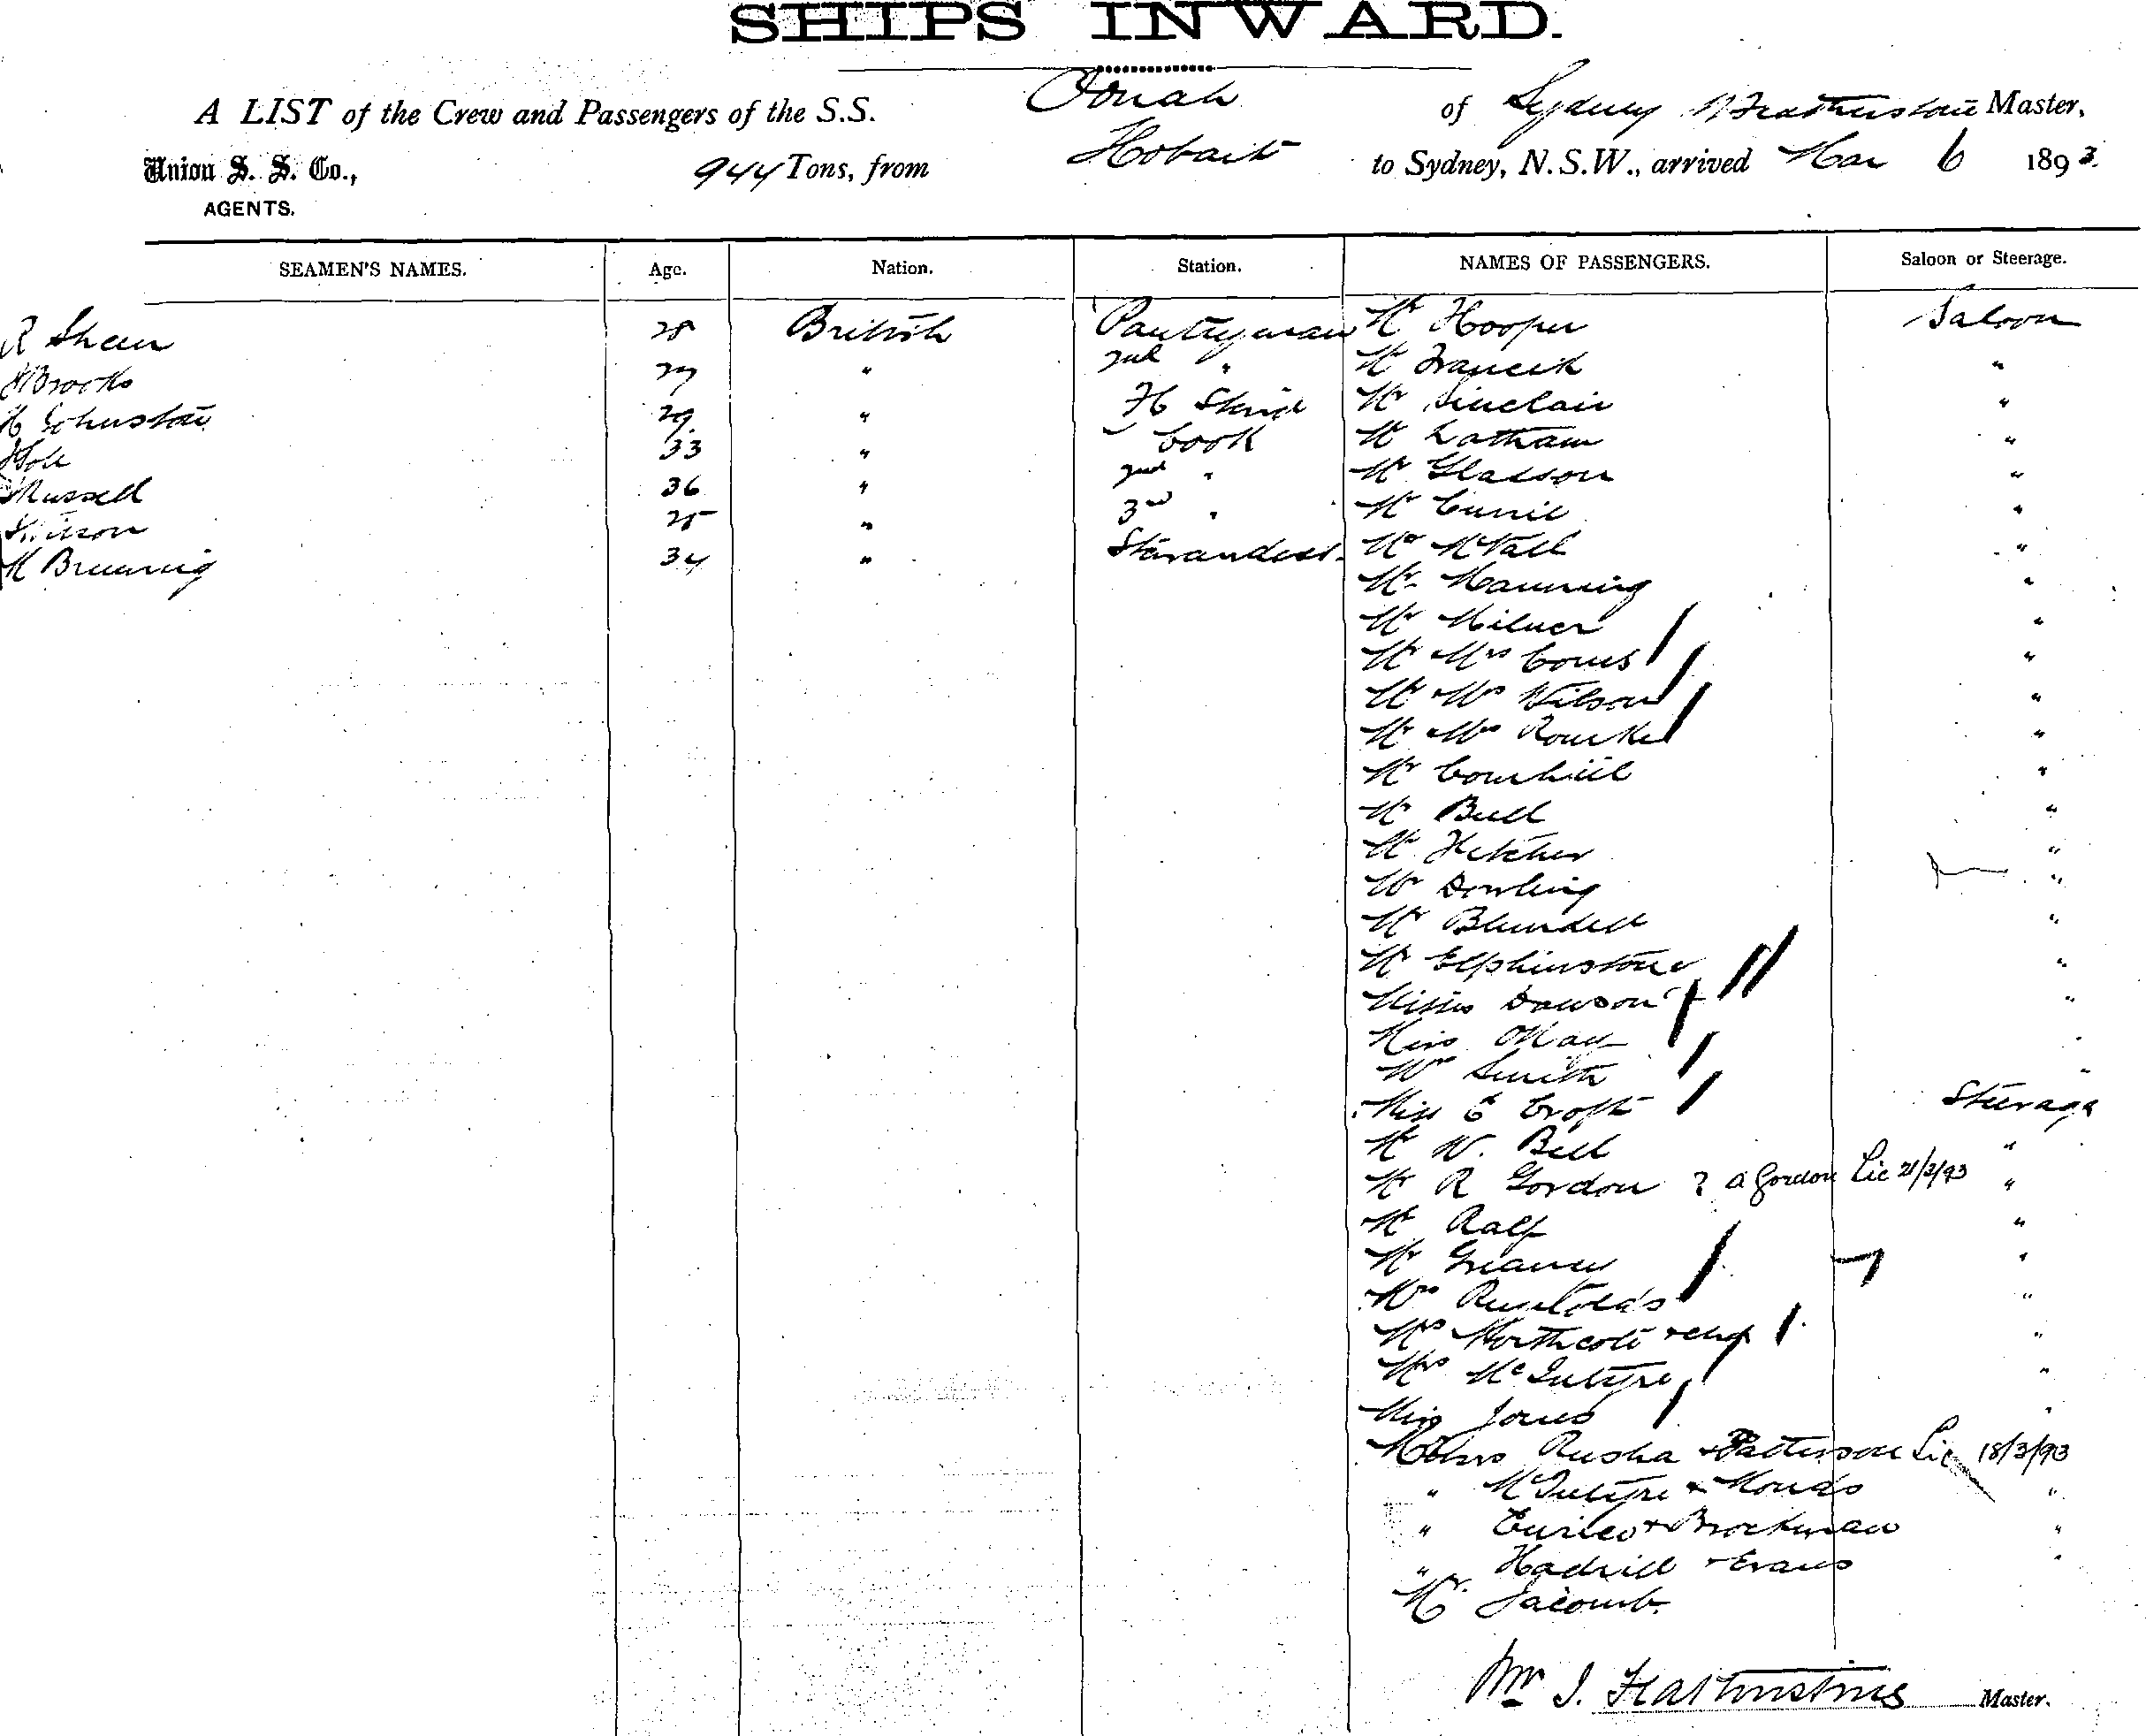 SHIPS INWARD.
A LIST of the Crew and Passengers of the S.S. Oonah of Sydney Featherstone Master,
Union S. S. Co., 944 Tons, from Hobart to Sydney, N.S.W., arrived Mar 6 1893.
AGENTS.
SEAMEN'S NAMES. Age. Nation. Station. NAMES OF PASSENGERS. Saloon or Steerage.
R Sheen 28 British Pantryman Mr Hooper Saloon
Brooks 27 " 2nd " Mr "
H Johnston 29 " Mr Sinclair "
33 " Cook Mr Latham "
Russell 36 " 2nd " Mr Glasson "
25 " 3rd " Mr "
34 " Stewardess Mr McNall "
Mr Manning "
Mr Milner "
Mr Mrs "
Mr Mrs Wilson "
Mr Mrs Rourke "
Mr Cornhill "
Mr Bull "
Mr "
Mr Dowling "
Mr Blundell "
Mr Elphinstone "
Misses Dawson "
Miss "
Mrs Smith "
Miss E Croft Steerage
Mr W. Bell "
Mr R Gordon ? A Gordon Lic 21/3/93 "
Mr Ralf "
Mr "
Mrs "
Mrs Northcote "
Mrs McIntyre "
Miss Jones "
Rusha + Patterson Lic 18/3/93
" McIntyre + Monds "
" + Brockman "
" Hadrill + Evans "
Mr. Jacomb.
Master.